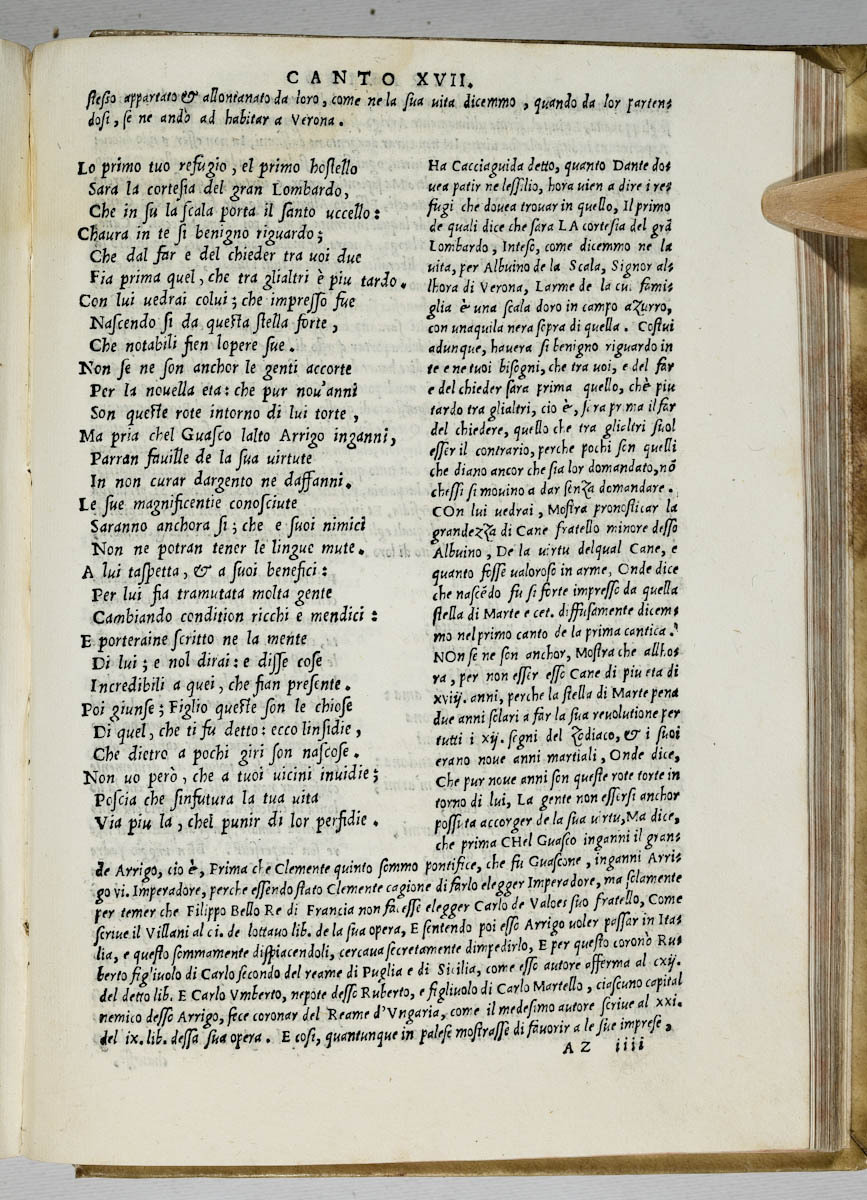 CANTO XVII.
stesso appartato & allontanato da loro, come ne la sua uita dicemmo, quando da lor parten=
dosi, se ne andò ad habitar a Verona.
Lo primo tuo refugio, el primo hostello
Sara la cortesia del gran Lombardo,
Che in su la scala porta il santo uccello:
Chaura in te si benigno riguardo;
Che dal far e del chieder tra uoi due
Fia prima quel, che tra glialtri è piu tardo.
Con lui uedrai colui; che impresso fue
Nascendo si da questa stella forte,
Che notabili fien lopere sue.
Non se ne son anchor le genti accorte
Per la nouella eta: che pur nou'anni
Son queste rote intorno di lui torte,
Ma pria chel Guasco lalto Arrigo inganni,
Parran fauille de la sua uirtute
In non curar dargento ne daffanni.
Le sue magnificentie conosciute
Saranno anchora si; che e suoi nimici
Non ne potran tener le lingue mute.
A lui taspetta, & a suoi benefici:
Per lui fia tramutata molta gente
Cambiando condition ricchi e mendici:
E porteraine scritto ne la mente
Di lui; e nol dirai: e disse cose
Incredibili a quei, che fian presente.
Poi giunse; Figlio queste son le chiose
Di quel, che ti fu detto: ecco linsidie,
Che dietro a pochi giri son nascose.
Non uo però, che a tuoi uicini inuidie;
Poscia che sinfutura la tua uita
Via piu la, chel punir di lor perfidie.
Ha Cacciaguida detto, quanto Dante do=
uea patir ne lessilio, hora uien a dire i re=
fugi che douea trouar in quello, Il primo
de quali dice che sara LA cortesia del grã
Lombardo, Inteso, come dicemmo ne la
uita, per Albuino de la Scala, Signor al=
lhora di Verona, Larme de la cui fami=
glia è una scala doro in campo azurro,
con unaquila nera sopra di quella. Costui
adunque, hauera si benigno riguardo in
te e ne tuoi bisogni, che tra uoi, e del far
e del chieder sara prima quello, chè piu
tardo tra glialtri, cio è, sara prima il far
del chiedere, quello che tra glialtri suol
esser il contrario, perche pochi son quelli
che diano ancor che sia lor domandato, nõ
chessi si mouino a dar senza domandare.
COn lui uedrai, Mostra pronosticar la
grandezza di Cane fratello minore desso
Albuino, De la uirtu delqual Cane, e
quanto fosse ualoroso in arme, Onde dice
che nascẽdo fu si forte impresso da quella
stella di Marte e cet. diffusamente dicem=
mo nel primo canto de la prima cantica.
NOn se ne son anchor, Mostra che allho=
ra, per non esser esso Cane di piu eta di
xviij. anni, perche la stella di Marte pena
due anni solari a far la sua reuolutione per
tutti i xij. segni del zodiaco, & i suoi
erano noue anni martiali, Onde dice,
Che pur noue anni son queste rote torte in
torno di lui, La gente non essersi anchor
possuta accorger de la sua uirtu, Ma dice,
che prima CHel Guasco inganni il gran=
de Arrigo, cio è, Prima che Clemente quinto sommo pontifice, che fu Guascone, inganni Arri=
go vi. Imperadore, perche essendo stato Clemente cagione di farlo elegger Imperadore, ma solamente
per temer che Filippo Bello Re di Francia non facesse elegger Carlo de Valoes suo fratello, Come
scriue il Villani al ci. de lottauo lib. de la sua opera, E sentendo poi esso Arrigo uoler passar in Ita=
lia, e questo sommamente dispiacendoli, cercaua secretamente dimpedirlo, E per questo coronò Ru=
berto figliuolo di Carlo secondo del reame di Puglia e di Sicilia, come esso autore afferma al cxij.
del detto lib. E Carlo Vmberto, nepote desso Ruberto, e figliuolo di Carlo Martello, ciascuno capital
nemico desso Arrigo, fece coronar del Reame d'Vngaria, come il medesimo autore scriue al xxi.
del ix. lib. dessa sua opera. E cosi, quantunque in palese mostrasse di fauorir a le sue imprese,
AZ iiii